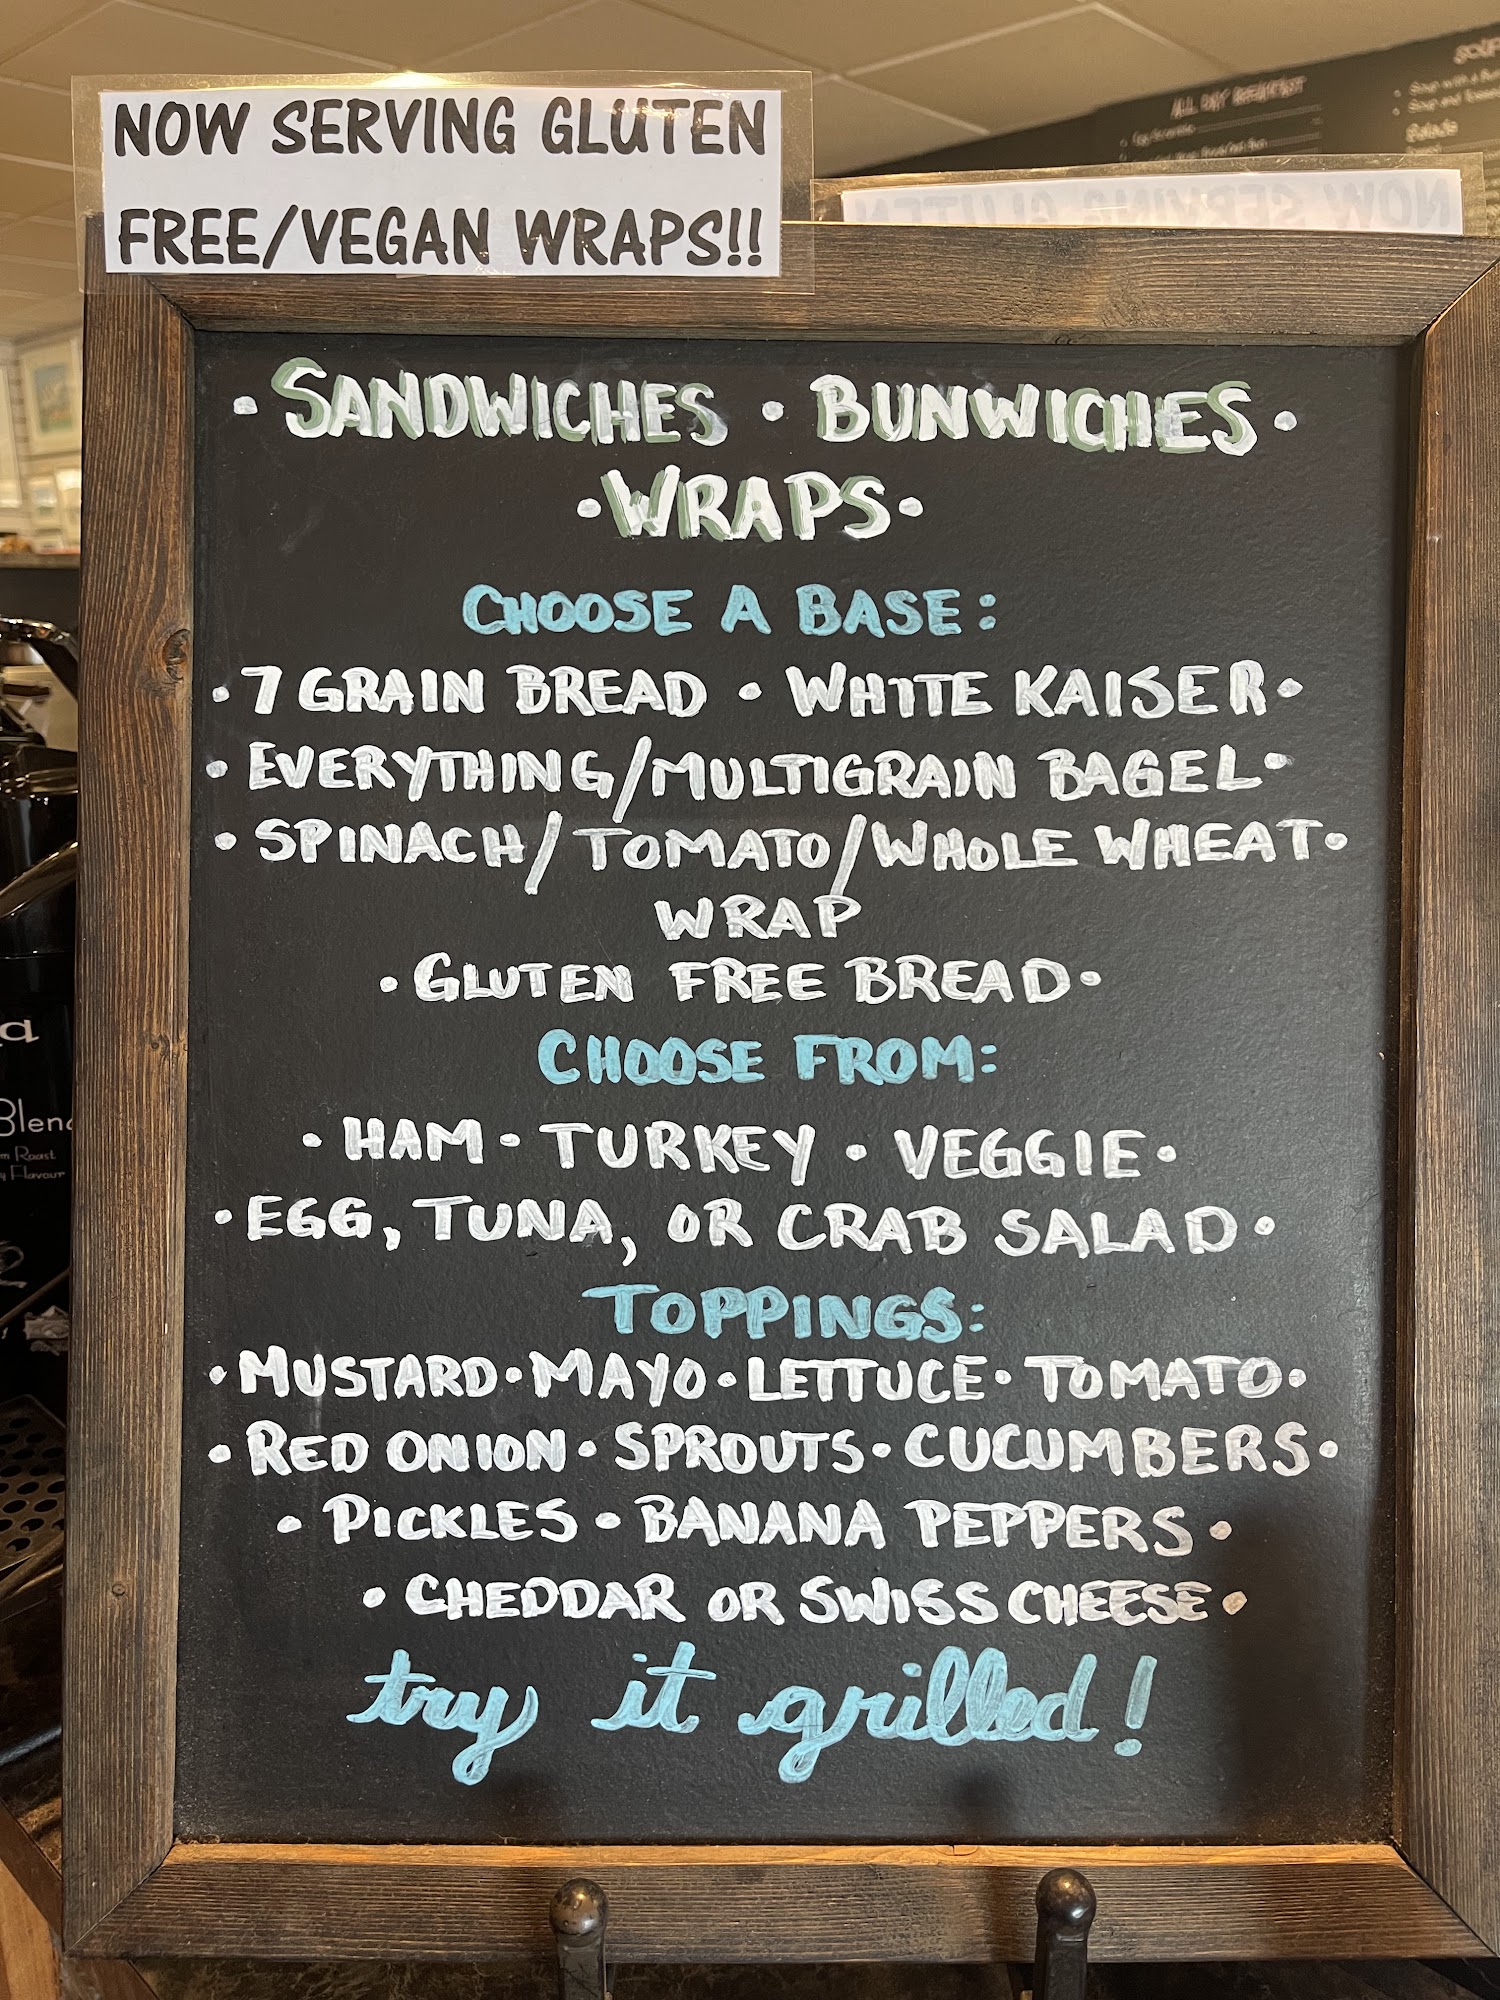 NOW SERVING GLUTEN
FREE/VEGAN WRAPS!!
ALL DAY BREAKFAST
NOW SERVING GLUTEN
• SANDWICHES • BUNWICHES •
• WRAPS •
CHOOSE A BASE:
• 7 GRAIN BREAD • WHITE KAISER •
• EVERYTHING/MULTIGRAIN BAGEL •
• SPINACH/TOMATO/WHOLE WHEAT •
WRAP
• GLUTEN FREE BREAD •
CHOOSE FROM:
• HAM • TURKEY • VEGGIE •
• EGG, TUNA, OR CRAB SALAD •
TOPPINGS:
• MUSTARD • MAYO • LETTUCE • TOMATO •
• RED ONION • SPROUTS • CUCUMBERS •
• PICKLES • BANANA PEPPERS •
• CHEDDAR OR SWISS CHEESE •
try it grilled!
Roast
Flavour